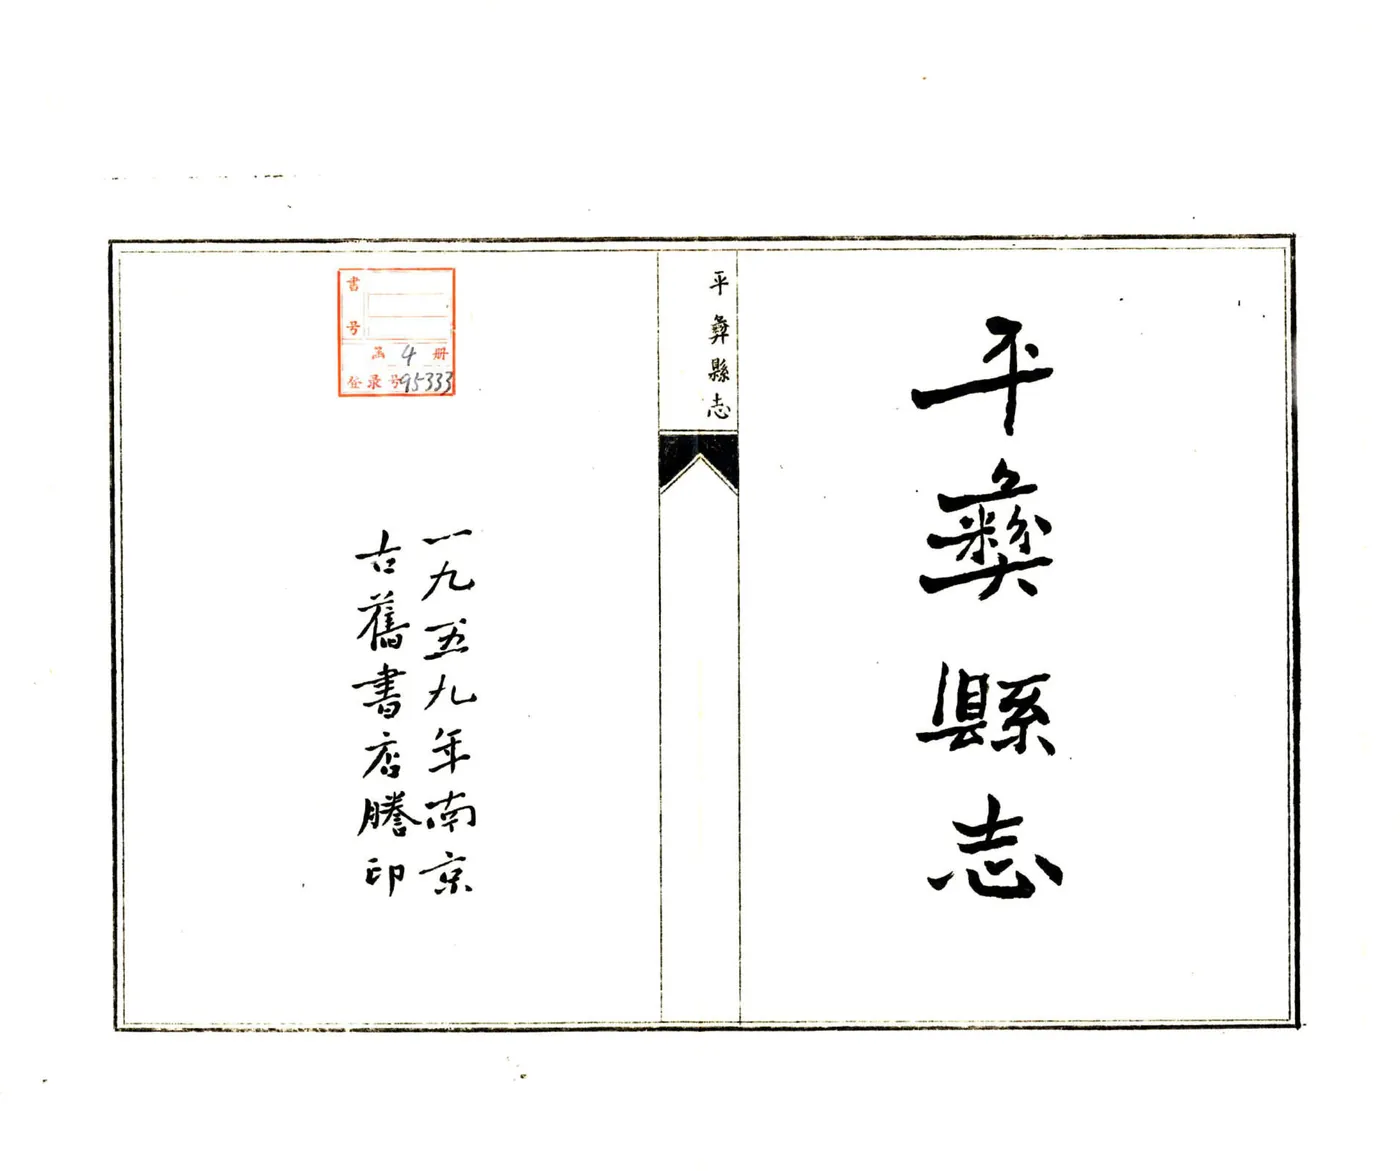 平彜縣志
平彜縣志
一九五九年南京
古舊書店謄印
書号
函 4 册
登录号 95333